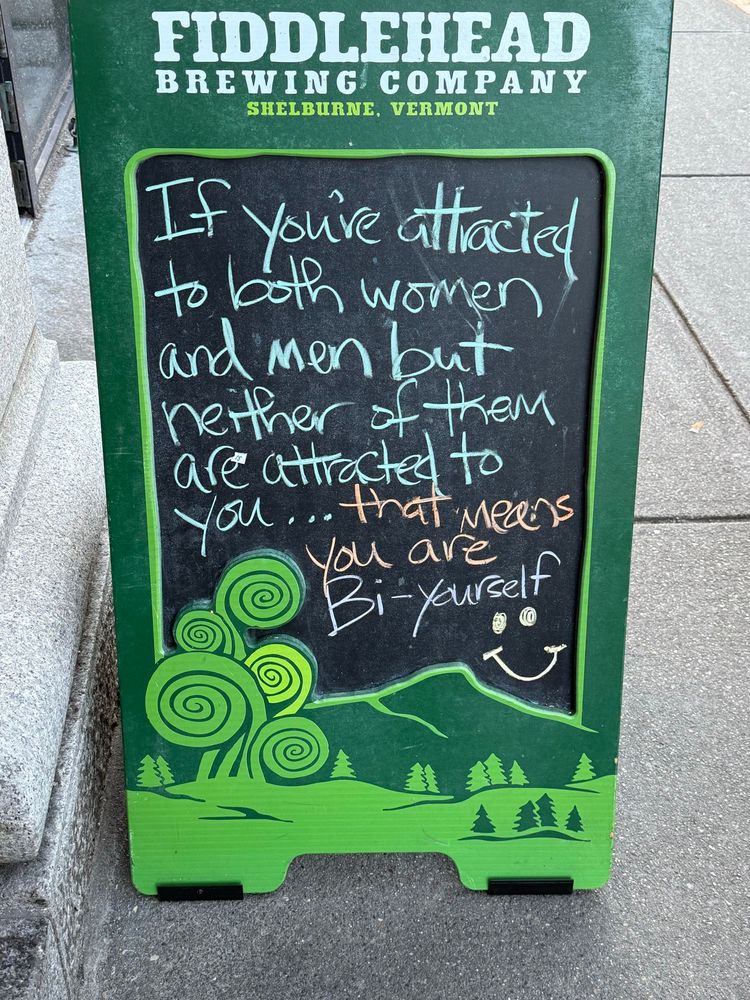 FIDDLEHEAD
BREWING COMPANY
SHELBURNE, VERMONT
If you're attracted
to both women
and men but
neither of them
are attracted to
you... that means
you are
Bi-yourself